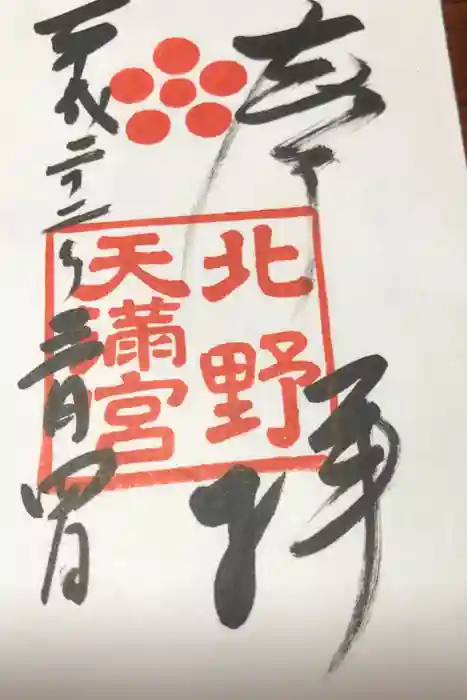 奉拝
北野
天滿宮
平成二十二年三月四日